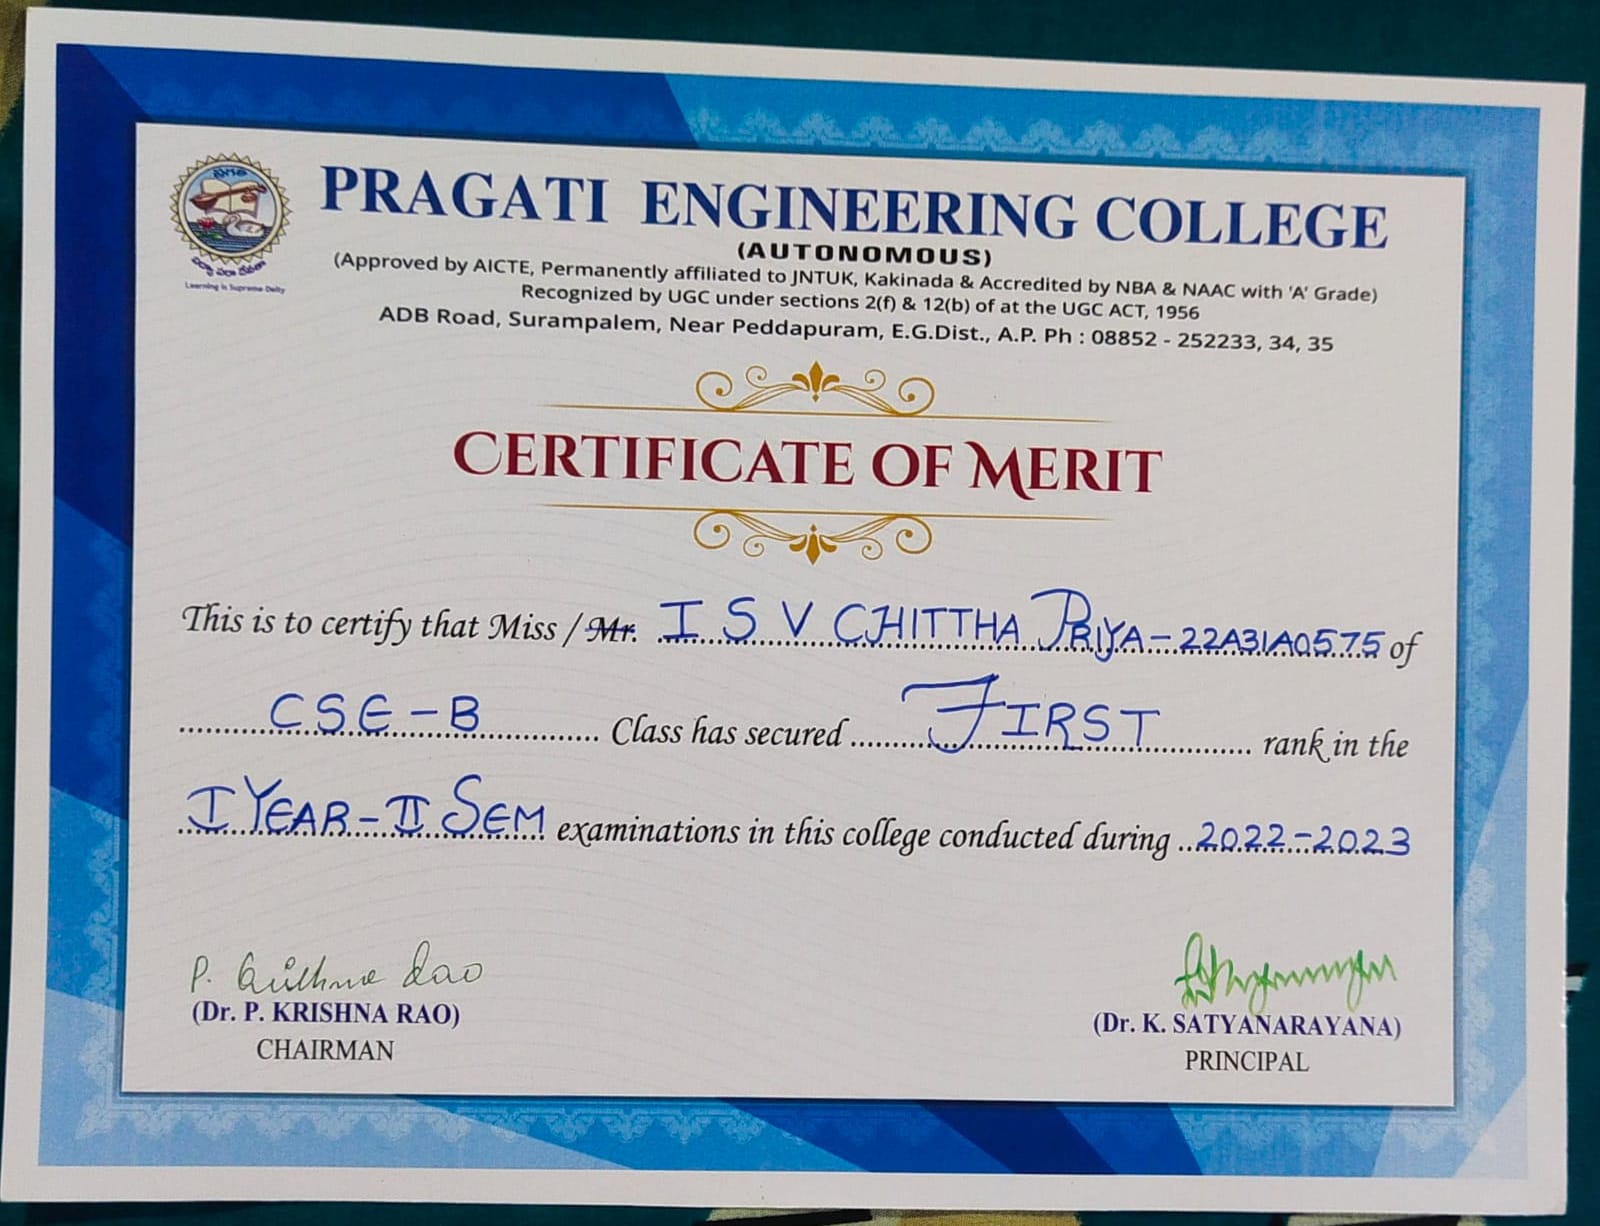 PRAGATI ENGINEERING COLLEGE
(AUTONOMOUS)
(Approved by AICTE, Permanently affiliated to JNTUK, Kakinada & Accredited by NBA & NAAC with 'A' Grade)
Recognized by UGC under sections 2(f) & 12(b) of at the UGC ACT, 1956
ADB Road, Surampalem, Near Peddapuram, E.G.Dist., A.P. Ph : 08852 - 252233, 34, 35
Learning is Supreme Deity
CERTIFICATE OF MERIT
This is to certify that Miss / Mr. I S V CHITTHA PRIYA - 22A31A0575 of
CSE - B Class has secured FIRST rank in the
I YEAR - II SEM examinations in this college conducted during 2022-2023
P. Krishna Rao
(Dr. P. KRISHNA RAO)
CHAIRMAN
(Dr. K. SATYANARAYANA)
PRINCIPAL